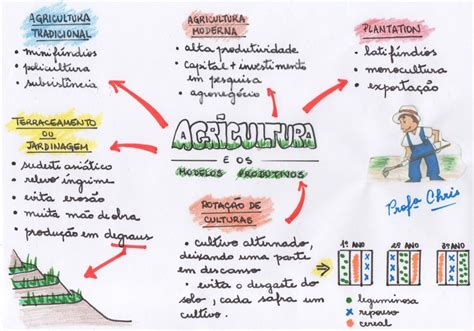 AGRICULTURA
TRADICIONAL
• minifúndios
• policultura
• subsistência
AGRICULTURA
MODERNA
• alta produtividade
• capital + investimento
em pesquisa
• agronegócio
PLANTATION
• latifúndios
• monocultura
• exportação
TERRACEAMENTO
OU
JARDINAGEM
• sudeste asiático
• relevo íngrime
• evita erosão
• muita mão de obra
• produção em degraus
AGRICULTURA
E OS
MODELOS PRODUTIVOS
ROTAÇÃO DE
CULTURAS
• cultivo alternado,
deixando uma parte
em descanso
• evita o desgaste do
solo, cada safra um
cultivo.
Profa Chris
1º ANO 2º ANO 3º ANO
leguminosa
x repouso
cereal